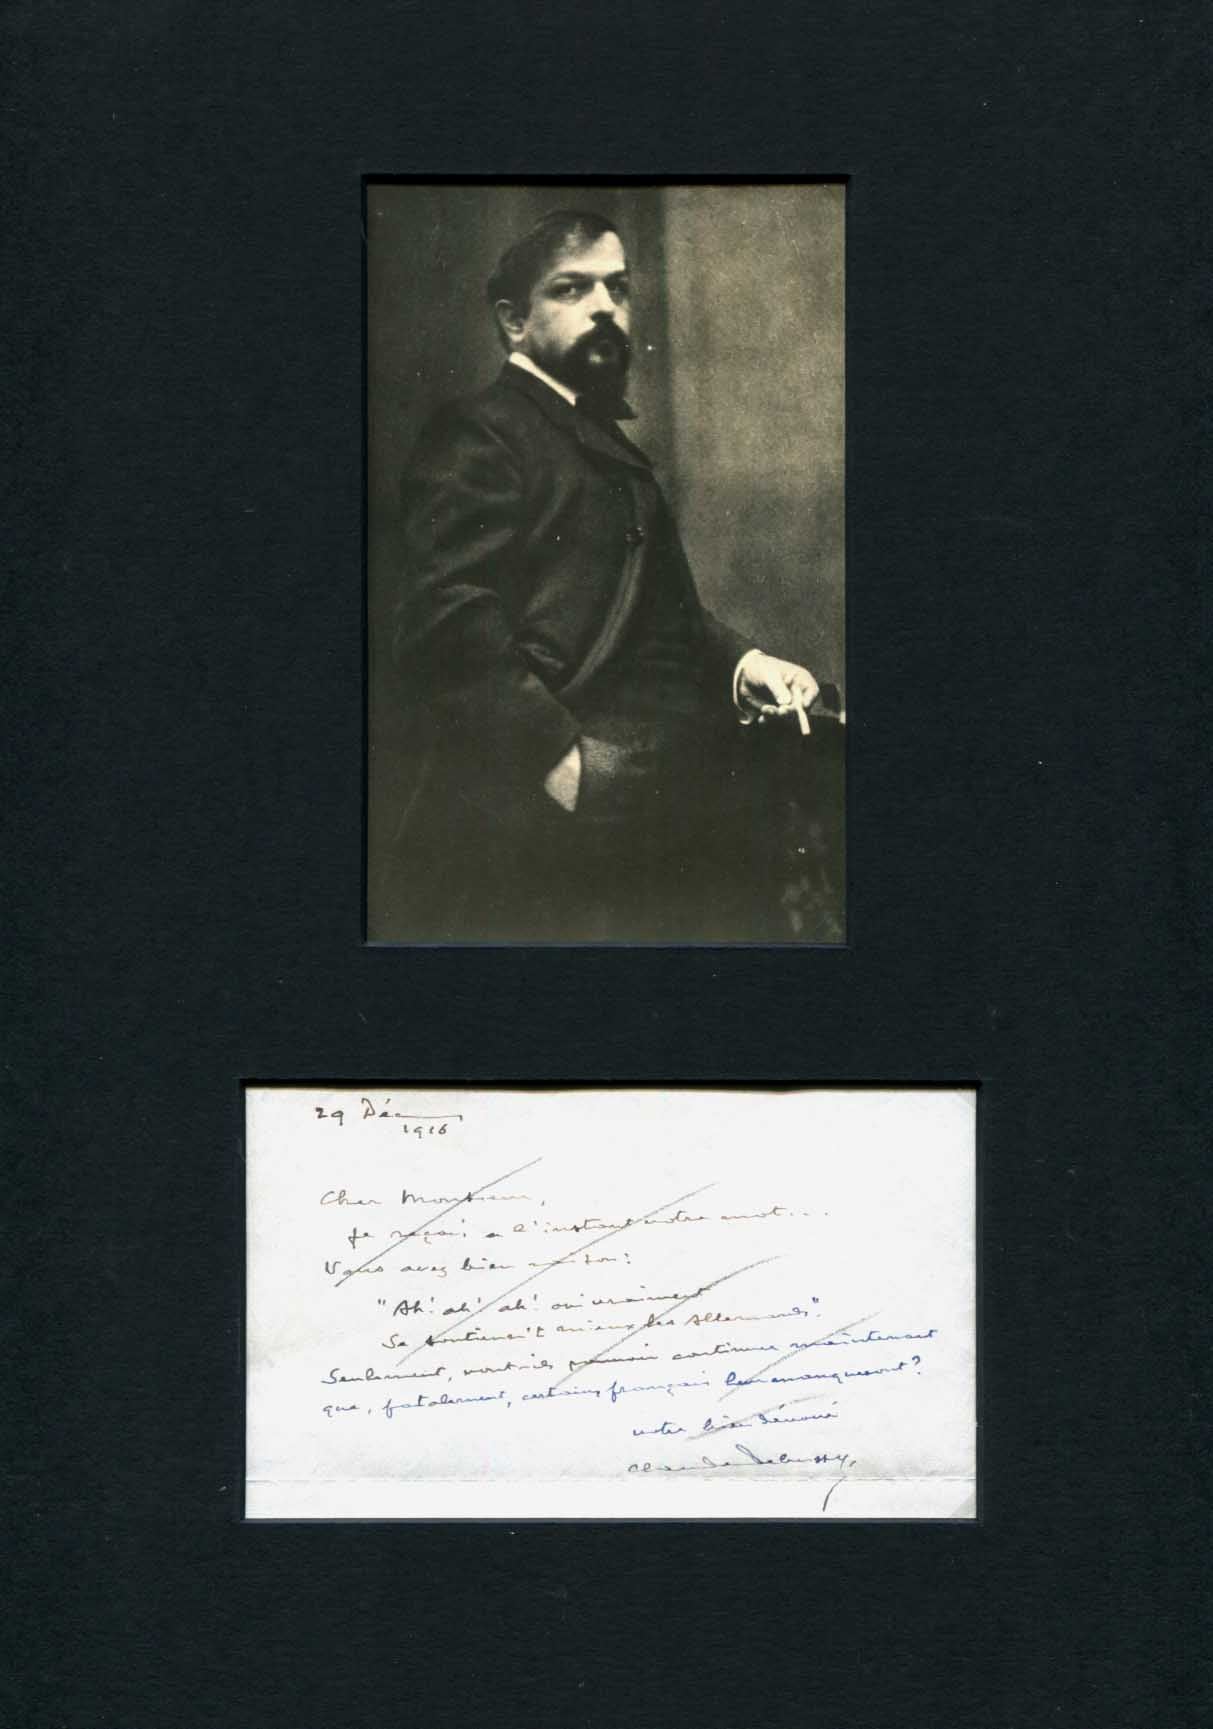 29 Déc
1916
Cher Monsieur,
Je reçois à l'instant votre mot...
Vous avez bien raison:
"Ah! ah! ah! oui vraiment
Se soutiens't mieux les Allemands".
Seulement, vont-ils pouvoir continuer maintenant
que, fatalement, certains français leur manqueront?
votre bien dévoué
Claude Debussy,